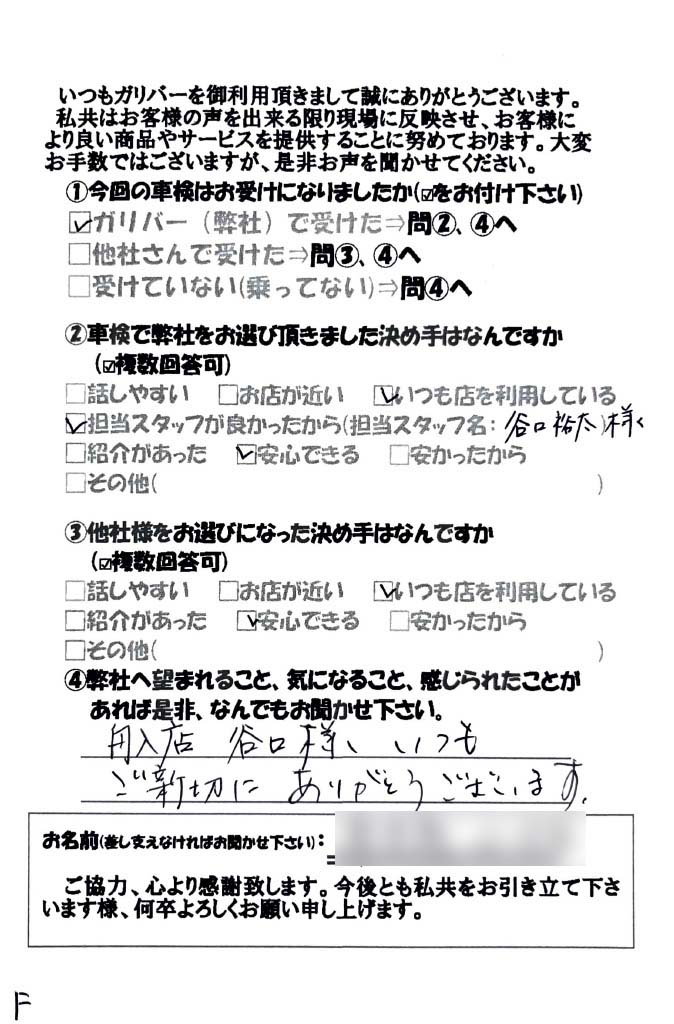 いつもガリバーを御利用頂きまして誠にありがとうございます。
私共はお客様の声を出来る限り現場に反映させ、お客様に
より良い商品やサービスを提供することに努めております。大変
お手数ではございますが、是非お声を聞かせてください。
①今回の車検はお受けになりましたか(☑をお付け下さい)
☑ガリバー（弊社）で受けた⇒問②、④へ
□他社さんで受けた⇒問③、④へ
□受けていない(乗ってない)⇒問④へ
②車検で弊社をお選び頂きました決め手はなんですか
(☑複数回答可)
□話しやすい □お店が近い ☑いつも店を利用している
☑担当スタッフが良かったから(担当スタッフ名：谷口裕太)様
□紹介があった ☑安心できる □安かったから
□その他( )
③他社様をお選びになった決め手はなんですか
(☑複数回答可)
□話しやすい □お店が近い ☑いつも店を利用している
□紹介があった ☑安心できる □安かったから
□その他( )
④弊社へ望まれること、気になること、感じられたことが
あれば是非、なんでもお聞かせ下さい。
店 谷口様、いつも
ご新切に ありがとうございます.
お名前(差し支えなければお聞かせ下さい)：
ご協力、心より感謝致します。今後とも私共をお引き立て下さ
います様、何卒よろしくお願い申し上げます。
F